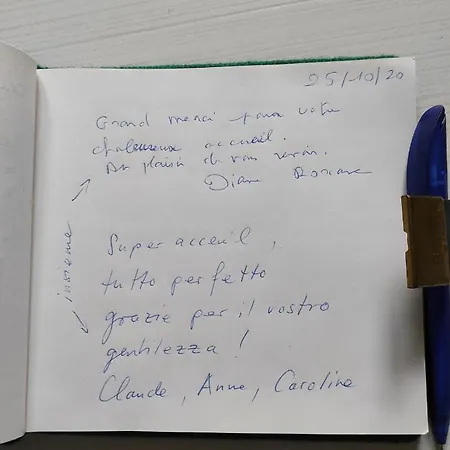 25/10/20
Grand merci pour votre
chaleureux accueil.
Au plaisir de vous revoir.
Diane Roxane
insieme
Super acceuil,
tutto perfetto
grazie per il vostro
gentilezza !
Claude, Anne, Caroline